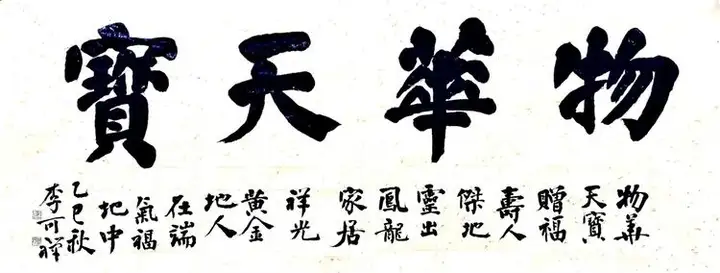 物華天寶
物華
天寶
贈福
壽人
傑地
靈出
鳳龍
家居
祥光
黃金
地人
在端
氣福
地中
乙巳秋
李可